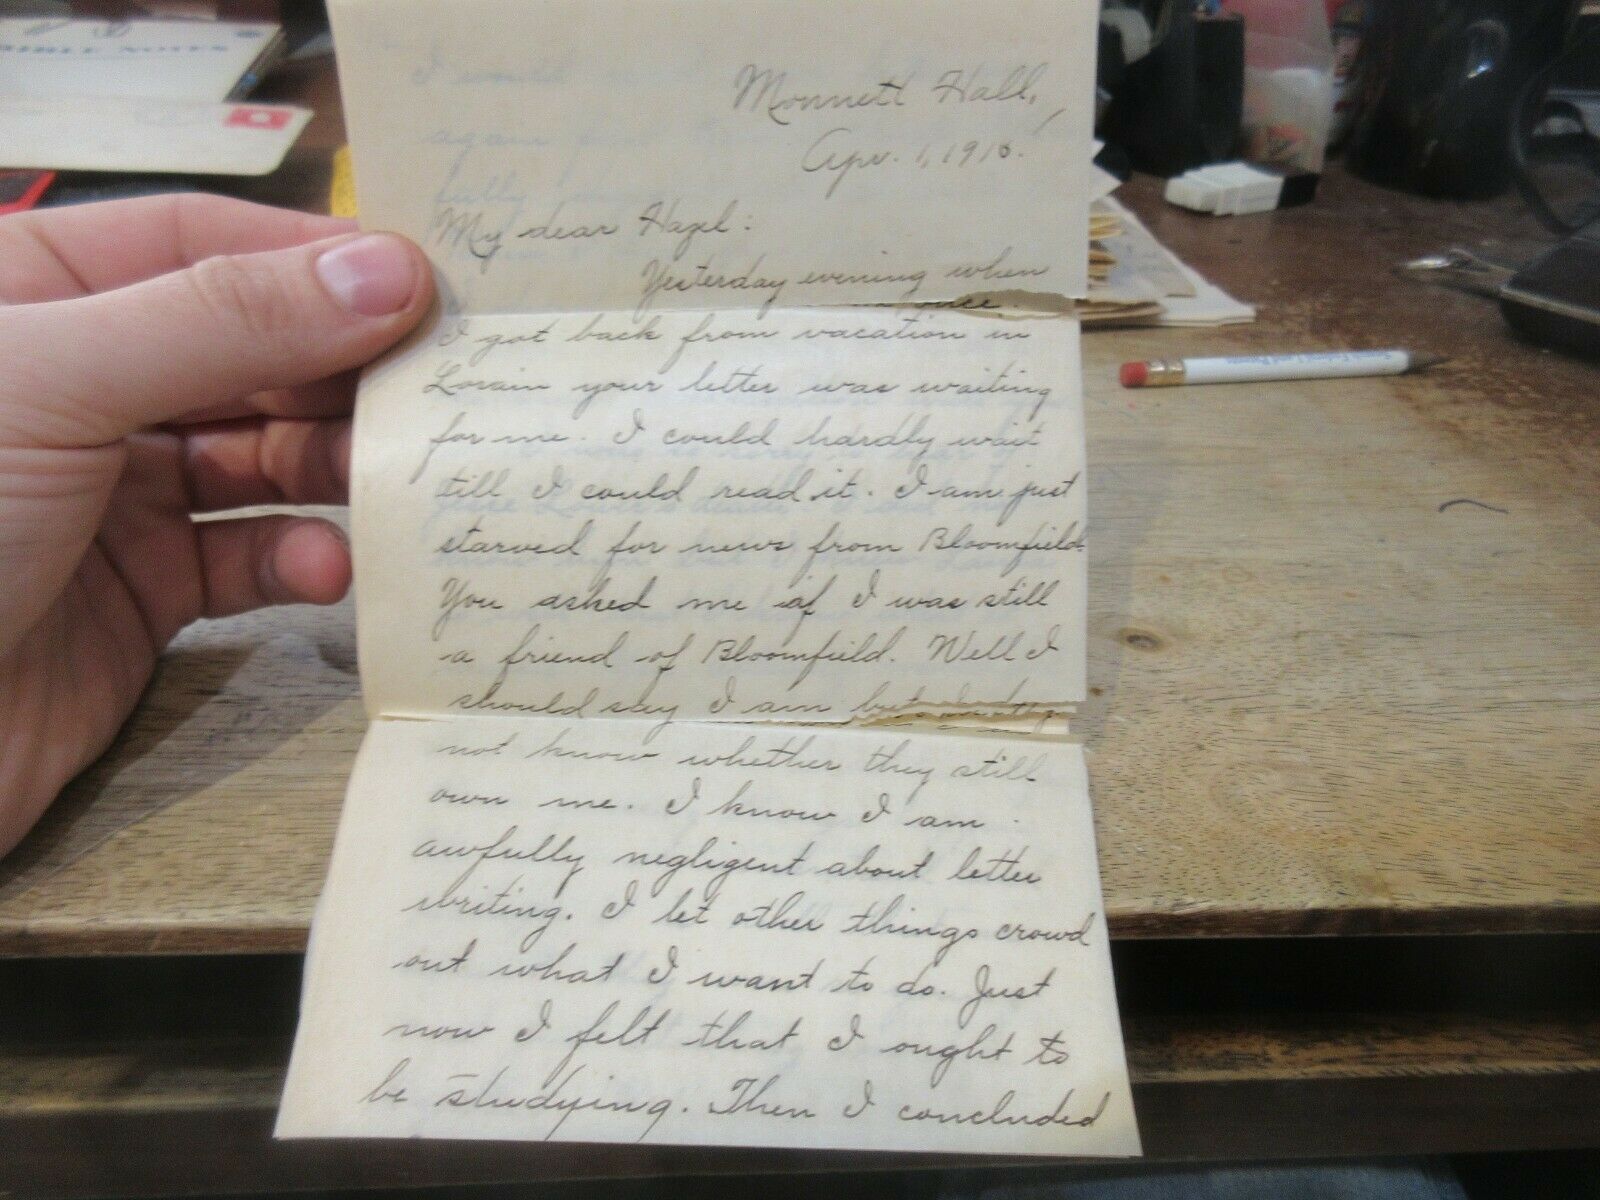 BIBLE NOTES
Monnett Hall,
Apr. 1, 1916.
My dear Hazel:
Yesterday evening when
I got back from vacation in
Lorain your letter was waiting
for me. I could hardly wait
till I could read it. I am just
starved for news from Bloomfield.
You asked me if I was still
a friend of Bloomfield. Well I
should say I am but
not know whether they still
own me. I know I am
awfully negligent about letter
writing. I let other things crowd
out what I want to do. Just
now I felt that I ought to
be studying. Then I concluded